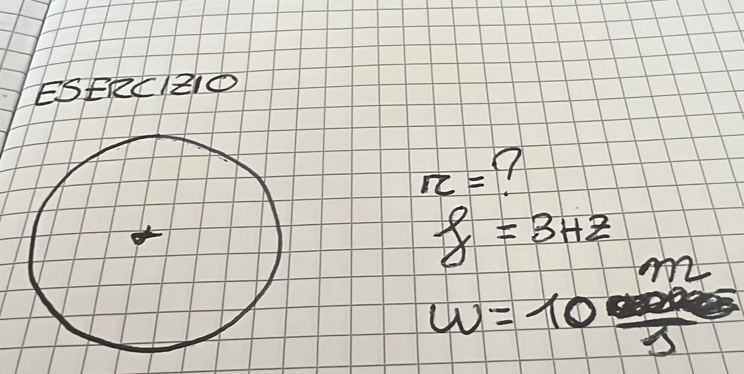 ESERCIZIO
r = ?
f = 3 HZ
ω = 10 m/s